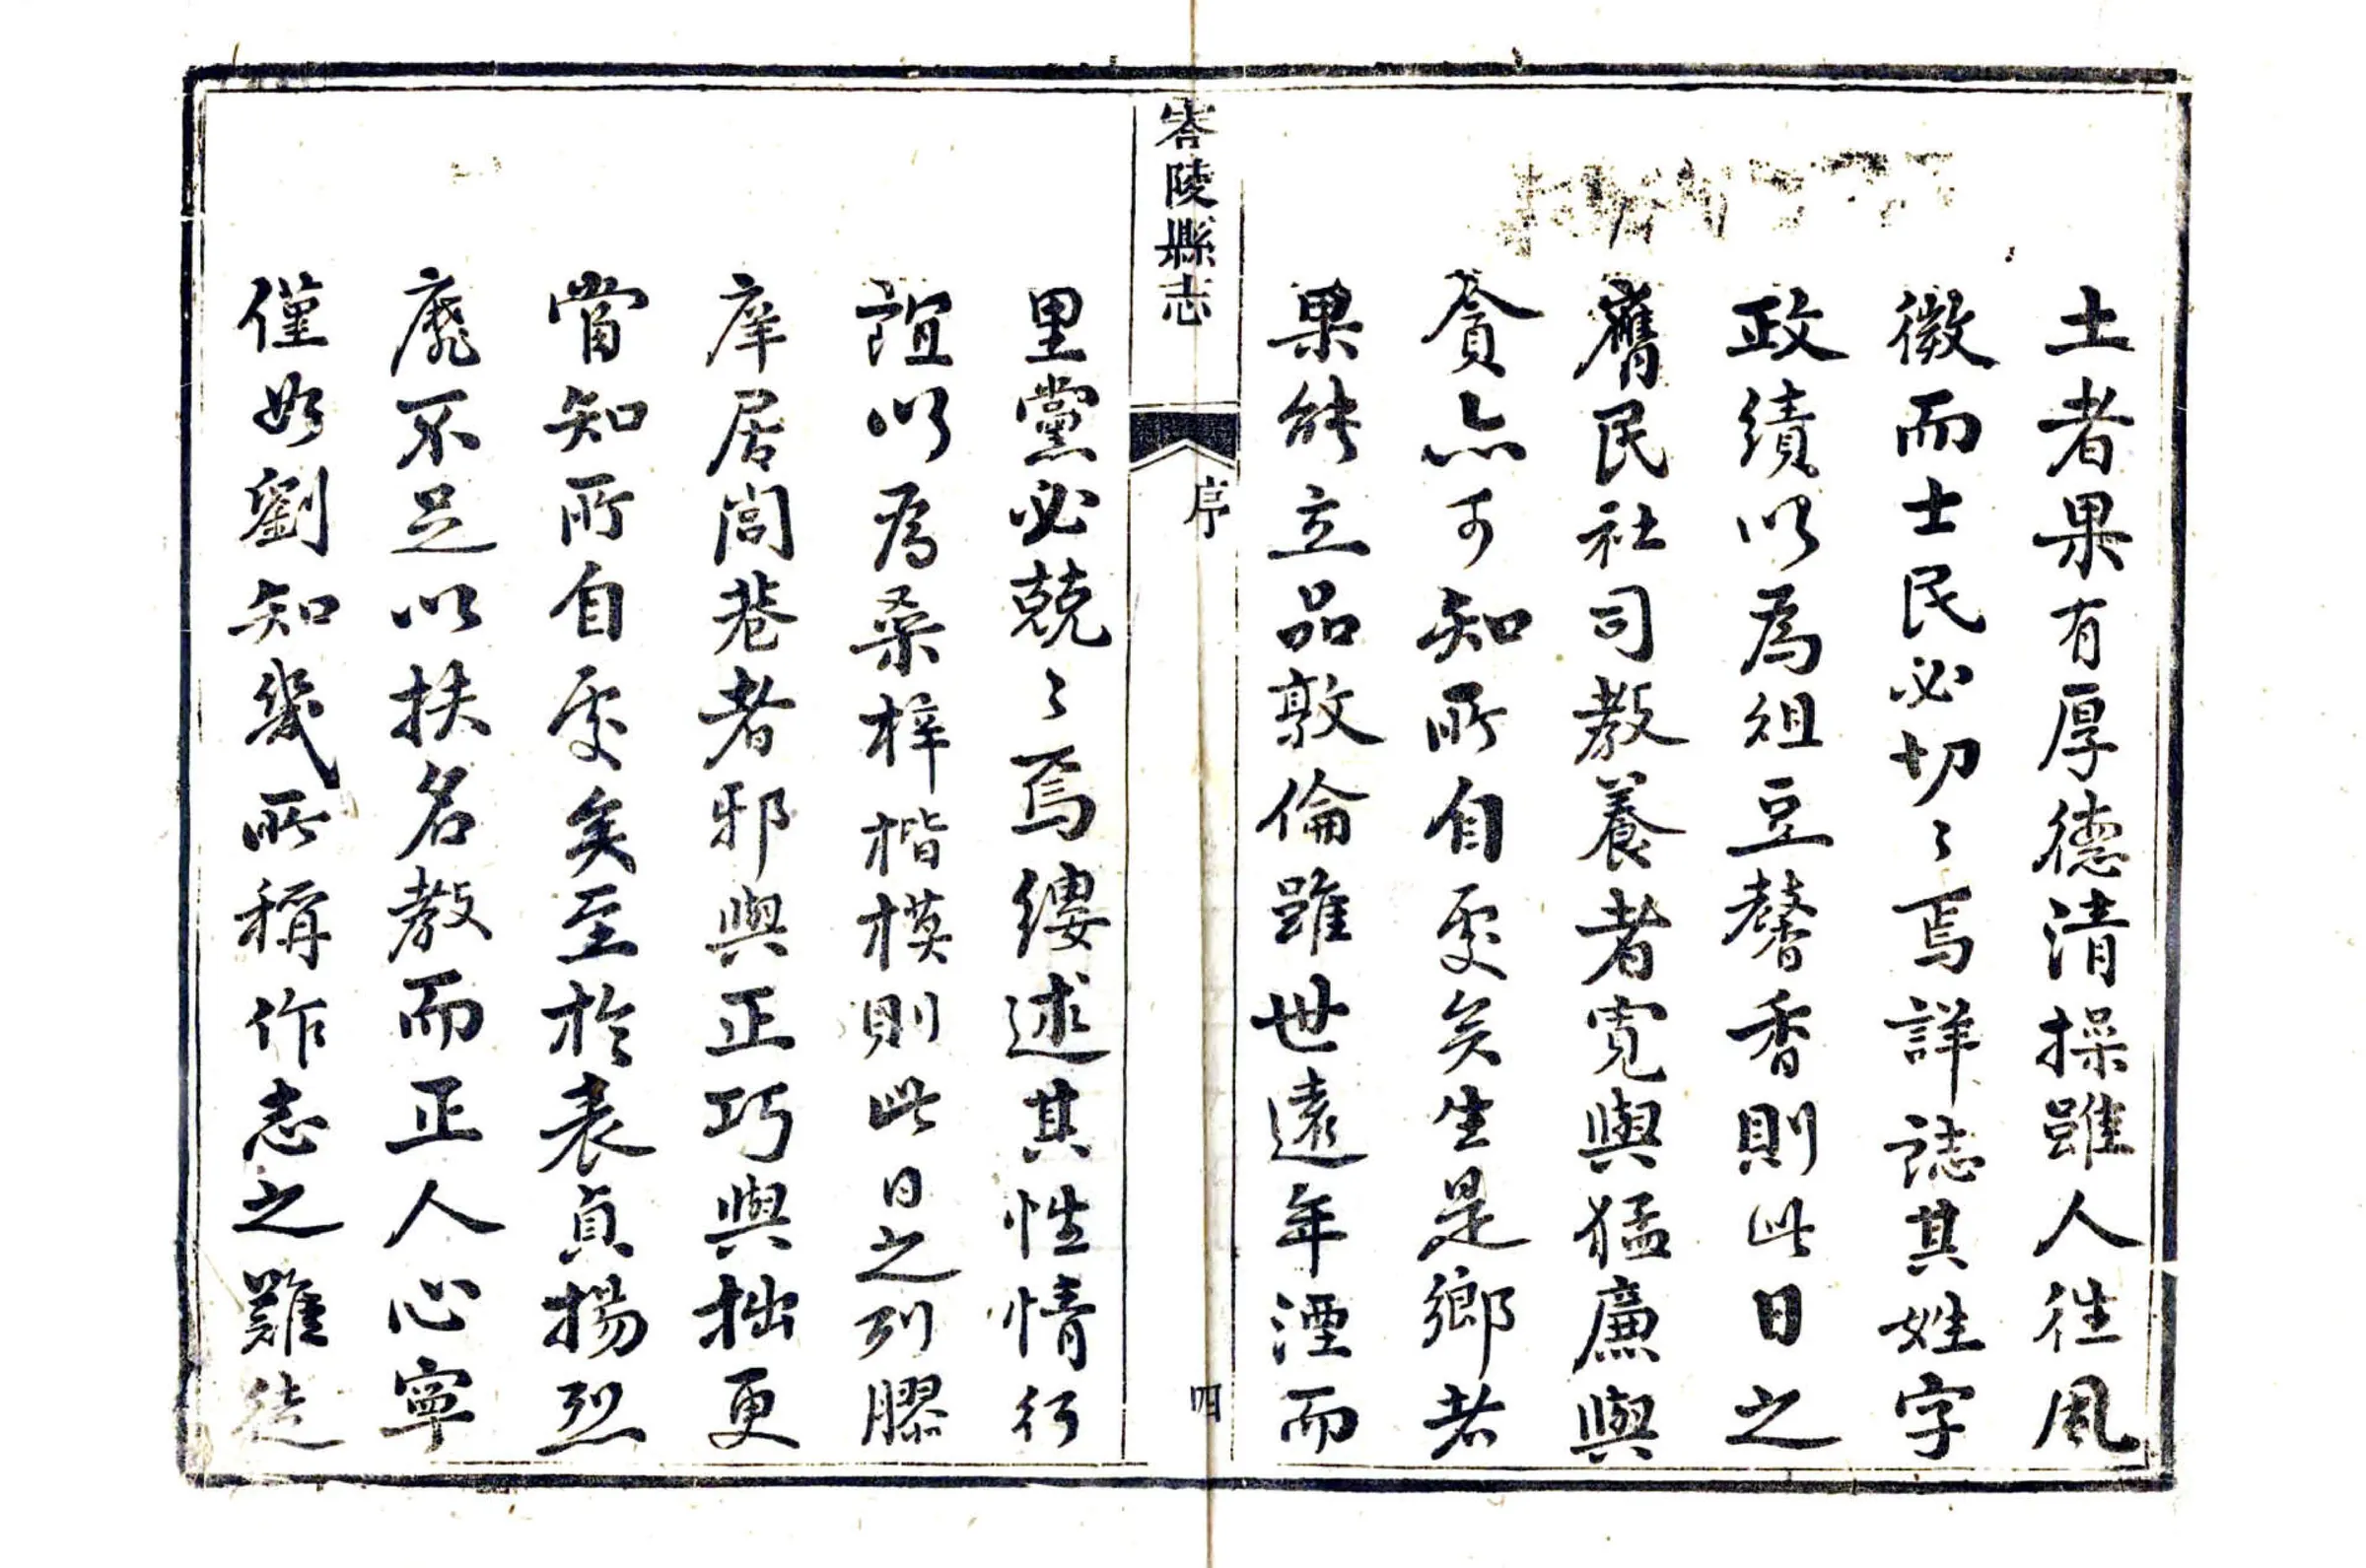 土者果有厚德清操雖人徃風
徴而士民必切〻焉詳誌其姓字
政績以為俎豆馨香則此日之
膺民社司教養者寛與猛廉與
貪亦可知所自處矣生是鄉者
果能立品敦倫雖世遠年湮而
峇陵縣志
序
四
里黨必兢〻焉縷述其性情行
誼以為桑梓楷模則此日之列膠
庠居閭巷者邪與正巧與拙更
當知所自處矣至於表貞揚烈
靡不足以扶名教而正人心寧
僅如劉知幾所稱作志之難徒